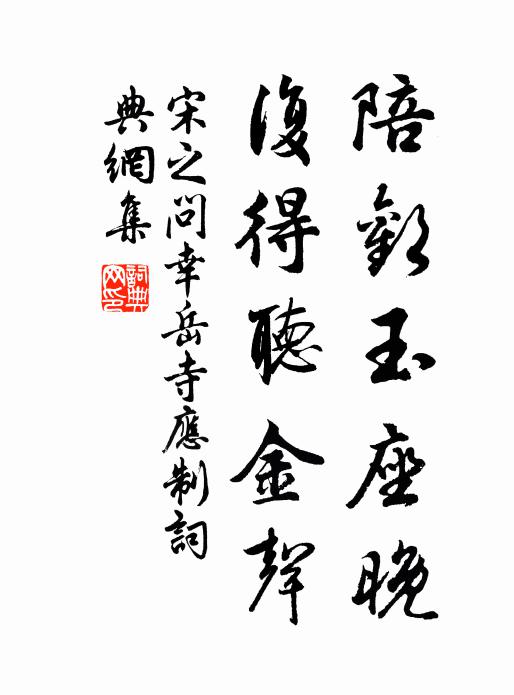 陪歡玉座晚
復得聽金聲
宋之问幸岳寺應制詞
典網集
詞典网印